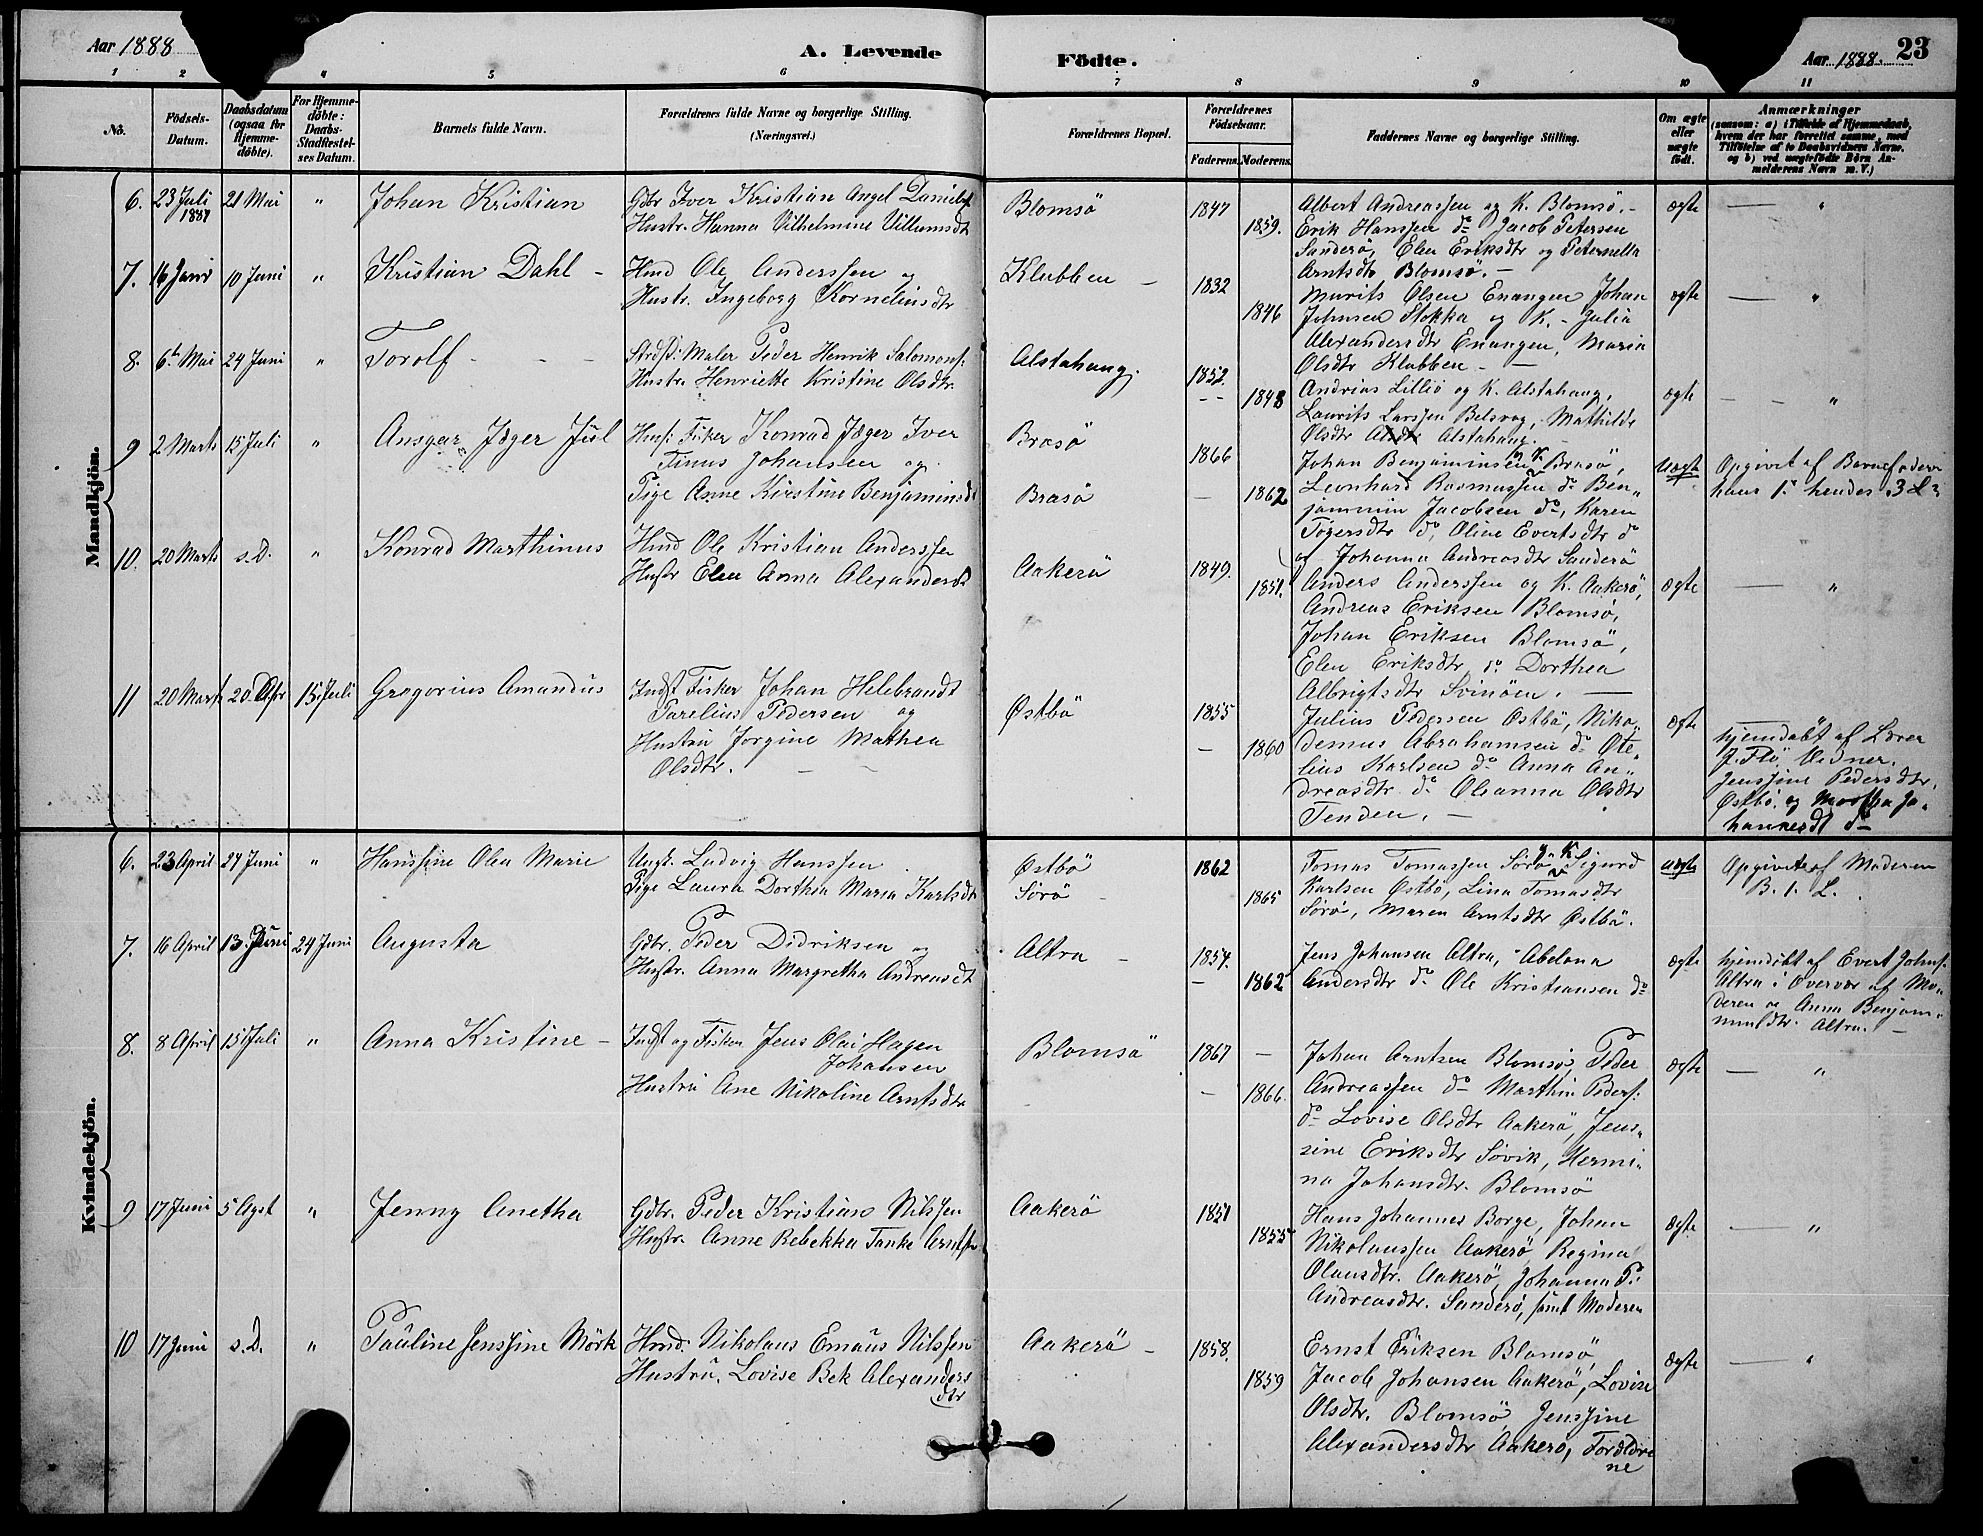 Aar 1888
A. Levende
Födte.
Aar 1888.
23
1 2 4 5 6 7 8 9 10 11
No.
Födsels-
Datum.
Daabsdatum
(ogsaa for
Hjemme-
döbte).
For Hjemme-
döbte:
Daabs-
Stadfæstel-
ses Datum.
Barnets fulde Navn.
Forældrenes fulde Navne og borgerlige Stilling.
(Næringsvei.)
Forældrenes Bopæl.
Forældrenes
Födselsaar.
Faderens. Moderens.
Faddernes Navne og borgerlige Stilling.
Om ægte
eller
uægte
födt.
Anmærkninger
(saasom: a) i Tilfælde af Hjemmedaab,
hvem der har forrettet samme, med
Tilföielse af to Daabsvidners Navne.
og b) ved uægtefödte Börn An-
melderens Navn m. V.)
Mandkjön.
6. 23 Juli 1887 21 Mai " Johan Kristian
Gdbr Iver Kristian Angel Danielst
Hustr. Hanna Vilhelmine Villumsdt
Blomsö 1847 1859.
Albert Andreassen og K. Blomsö.-
Erik Hanssen do Jacob Petersen
Sanderö, Elen Eriksdtr og Peternella
Arntsdtr Blomsö. -
ægte — "
7. 16 Janr 10 Juni " Kristian Dahl -
Hmd Ole Anderssen og
Hustr. Ingeborg Kornelius dtr
Klubben - 1832 1846
Murits Olsen Enangen Johan
Johnsen Stokka og K. - Julia
Alexandersdtr Enangen, Maria
Olsdtr Klubben - —
ægte — "
8. 6te Mai 24 Juni " Torolf - - -
Strdsd: Maler Peder Henrik Salomons:
Hustr. Henriette Kristine Olsdtr.
Alstahaug. 1852. 1848
Andrias Lilliö og K. Alstahaug,
Laurits Larssen Belsvag, Mathilde
Olsdtr Alstahaug. -
ægte — "
9 2 Marts 15 Juli " Ansgar Jæger Jul
Husf: Fisker Konrad Jæger Iver
Tinus Johansen og
Pige Anne Kirstine Benjaminsdt
Brasö 1866
Brasö - 1862
Johan Benjaminsen og K. Brasö,
Leonhard Rasmussen do Ben,,
jammin Jacobsen do, Karen
Tögersdtr do, Oline Evertsdtr do
og Johanna Andreasdtr Sanderö
Uægte
Opgivet af Barnefaderen
hans 1. hendes 3 L.
10. 20 Marts s.D. " Konrad Marthinus
Hmd Ole Kristian Anderssen
Hustr Elen Anna Alexandersdt
Aakerö 1849. 1851.
Anders Anderssen og K. Aakerö,
Andreas Eriksen Blomsö,
Johan Eriksen Blomsö,
Elen Eriksdtr, do Dorthea
Albrigtsdtr Svinöen. —
ægte — "
11 20 Marts 20 Apr 15 Juli Gregorius Amandus
Indst Fisker Johan Hilebrandt
Parelius Pedersen og
Hustru Jorgine Mathea
Olsdtr. - -
Østbö 1855 - 1860
Julius Pedersen Østbö, Niko,,
demus Abrahamsen do Ote,,
lius Karlsen do Anna An,,
dreasdtr do Oleanna Olsdtr
Tenden. -
ægte
hjemdöbt af Lærer
J. Flö. Vidner.
Jenssine Pedersdtr.
Østbö og Martha Jo,,
hannesdt do
Kvindekjön.
6. 23 April 24 Juni " Hanssine Olea Marie
Ungk. Ludvig Hanssen
Pige Laura Dorthea Maria Karlsdtr
Østbö 1862
Sörö - 1865
Tomas Tomassen Sörö og K Sigurd
Karlsen Østbö, Lina Tomasdtr
Sörö, Maren Arntsdtr Østbö.
uægte
Opgivet af Moderen
B. 1. L.
7. 16 April 13. Juni 24 Juni Augusta
Gdbr. Peder Didriksen og
Hustr. Anna Margretha Andreasdt
Altra - 1854. - 1862
Jens Johansen Altra, Abelona
Andersdtr do Ole Kristiansen do
ægte
hjemdöbt af Evert Johns.
Altra i Overvær af Mo,,
deren og Anna Benjam,,
minsdtr. Altra. -
8. 8 April 15 Juli " Anna Kristine -
Indst og Fisker Jens Olai Hagen
Johansen
Hustru Ane Nikoline Arntsdtr
Blomsö 1867 - 1866.
Johan Arntsen Blomsö, Peder
Andreassen do Marthin Peders.
do Lovise Olsdtr Aakerö, Jens-
sine Eriksdtr Sövik, Hermi-
na Johansdtr. Blomsö
ægte — "
9 17 Juni 5 Agst " Jenny Anetha
Gdbr. Peder Kristian Nilssen
Hustr. Anne Rebekka Tanke Arntsdtr
Aakerö 1851 1855
Hans Johannes Borge, Johan
Nikolaussen Aakerö Regina
Olausdtr. Aakerö, Johanna P.
Andreasdtr. Sanderö, samt Moderen
ægte — "
10 17 Juni s.D. " Pauline Jenssine Mörk
Hmd. Nikolaus Emaus Nilssen
Hustru. Lovise Bek Alexanders
dtr
Aakerö - 1858. 1859
Ernst Eriksen Blomsö,
Jacob Johansen Aakerö, Lovise
Olsdtr. Blomsö Jenssine
Alexandersdtr Aakerö, Forældre
ne
ægte — "